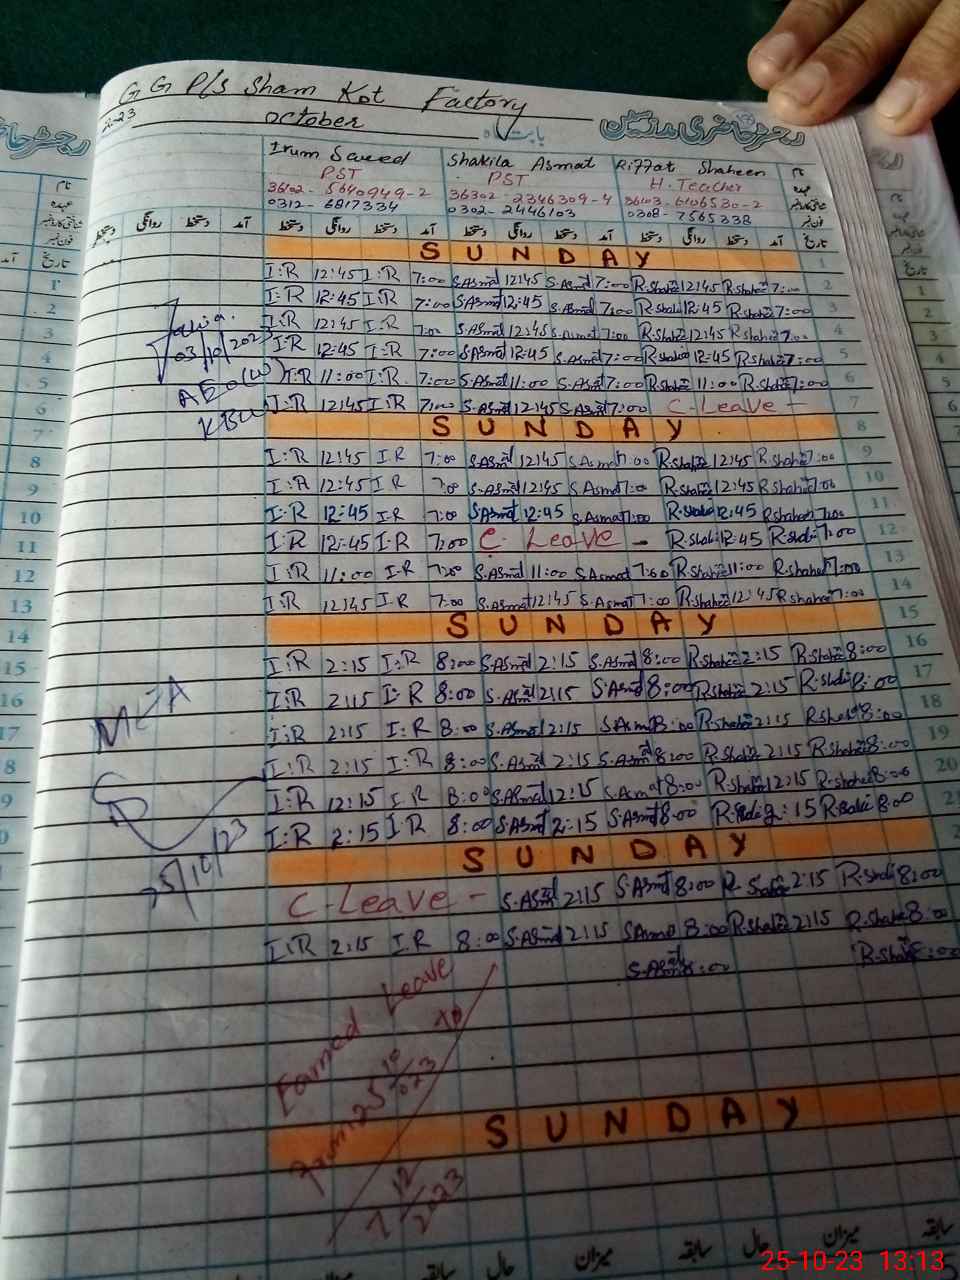 G G P/S Sham Kot Factory
2023 October بابت ماہ رجسٹر حاضری مدرسین
Irum Saeed Shakila Asmat Riffat Shaheen نام
PST PST H. Teacher عہدہ
36102-5640949-2 36302-2346309-4 36103-6106530-2
0312-6817334 0302-2446103 0308-7565338 فون نمبر
دستخط روانگی دستخط آمد دستخط روانگی دستخط آمد دستخط روانگی دستخط آمد تاریخ
SUNDAY 1
I:R 12:45 I:R 7:00 S.Asmat 12:45 S.Asmat 7:00 R.Shaheen 12:45 R.Shaheen 7:00 2
I:R 12:45 I:R 7:00 S.Asmat 12:45 S.Asmat 7:00 R.Shaheen 12:45 R.Shaheen 7:00 3
I:R 12:45 I:R 7:00 S.Asmat 12:45 S.Asmat 7:00 R.Shaheen 12:45 R.Shaheen 7:00 4
03/10/2023
I:R 12:45 I:R 7:00 S.Asmat 12:45 S.Asmat 7:00 R.Shaheen 12:45 R.Shaheen 7:00 5
AEO(W)
I:R 11:00 I:R 7:00 S.Asmat 11:00 S.Asmat 7:00 R.Shaheen 11:00 R.Shaheen 7:00 6
KBW
I:R 12:45 I:R 7:00 S.Asmat 12:45 S.Asmat 7:00 C-Leave - 7
SUNDAY 8
I:R 12:45 I:R 7:00 S.Asmat 12:45 S.Asmat 7:00 R.Shaheen 12:45 R.Shaheen 7:00 9
I:R 12:45 I:R 7:00 S.Asmat 12:45 S.Asmat 7:00 R.Shaheen 12:45 R.Shaheen 7:00 10
I:R 12:45 I:R 7:00 S.Asmat 12:45 S.Asmat 7:00 R.Shaheen 12:45 R.Shaheen 7:00 11
I:R 12:45 I:R 7:00 C-Leave - R.Shaheen 12:45 R.Shaheen 7:00 12
I:R 11:00 I:R 7:00 S.Asmat 11:00 S.Asmat 7:00 R.Shaheen 11:00 R.Shaheen 7:00 13
I:R 12:45 I:R 7:00 S.Asmat 12:45 S.Asmat 7:00 R.Shaheen 12:45 R.Shaheen 7:00 14
SUNDAY 15
I:R 2:15 I:R 8:00 S.Asmat 2:15 S.Asmat 8:00 R.Shaheen 2:15 R.Shaheen 8:00 16
I:R 2:15 I:R 8:00 S.Asmat 2:15 S.Asmat 8:00 R.Shaheen 2:15 R.Shaheen 8:00 17
MEA
I:R 2:15 I:R 8:00 S.Asmat 2:15 S.Asmat 8:00 R.Shaheen 2:15 R.Shaheen 8:00 18
I:R 2:15 I:R 8:00 S.Asmat 2:15 S.Asmat 8:00 R.Shaheen 2:15 R.Shaheen 8:00 19
I:R 12:15 I:R 8:00 S.Asmat 12:15 S.Asmat 8:00 R.Shaheen 12:15 R.Shaheen 8:00 20
I:R 2:15 I:R 8:00 S.Asmat 2:15 S.Asmat 8:00 R.Shaheen 2:15 R.Shaheen 8:00 21
25/10/23
SUNDAY
C-Leave - S.Asmat 2:15 S.Asmat 8:00 R.Shaheen 2:15 R.Shaheen 8:00
I:R 2:15 I:R 8:00 S.Asmat 2:15 S.Asmat 8:00 R.Shaheen 2:15 R.Shaheen 8:00
S.Asmat 8:00 R.Shaheen 8:00
Earned Leave
From 25 10/2023 To
7 12/2023
SUNDAY
سابقہ حال میزان سابقہ حال میزان سابقہ
25-10-23 13:13